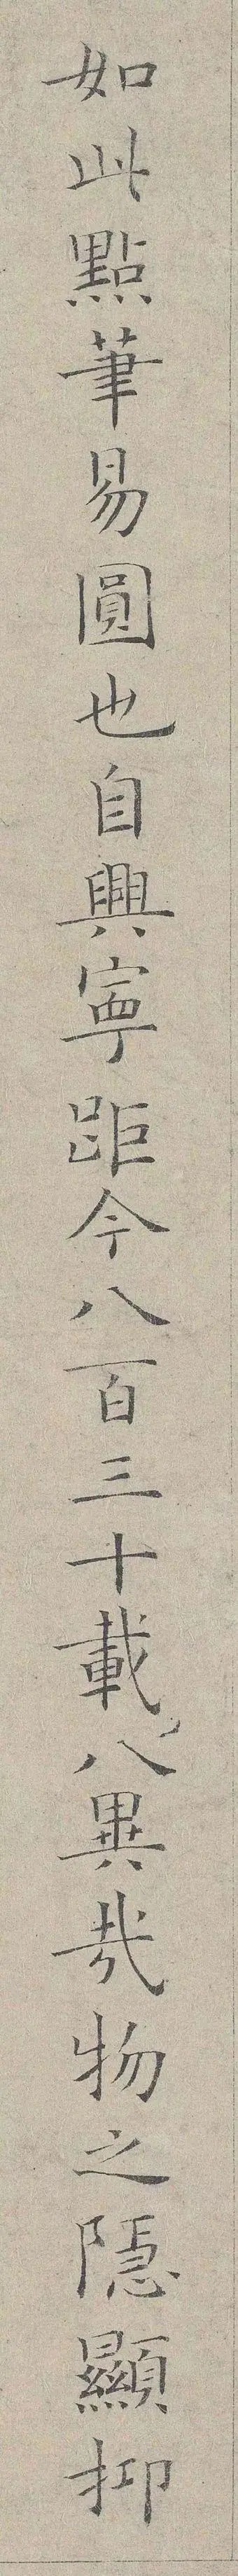 如此點筆易圓也自興寧距今八百三十載八異哉物之隱顯抑